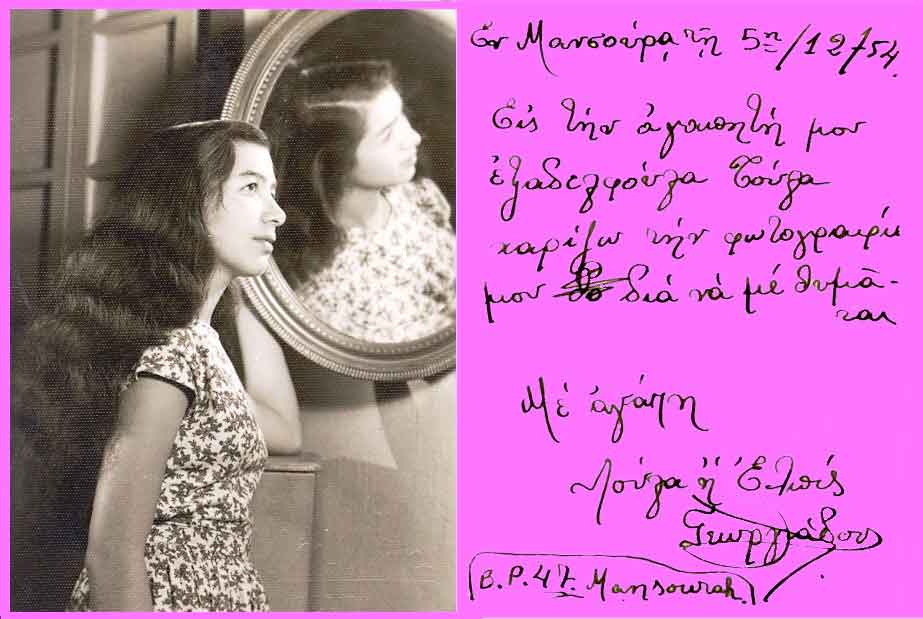 Ἐν Μανσούρᾳ τῇ 5η/12/54.
Εἰς τήν ἀγαπητή μου
ἐξαδελφούλα Τούλα
χαρίζω τήν φωτογραφία
μου διά νά μέ θυμᾶ-
ται
Μέ ἀγάπη
Λούλα ἤ Ἐλπίς
Γεωργιάδου
B.P. 47. Mansourah.